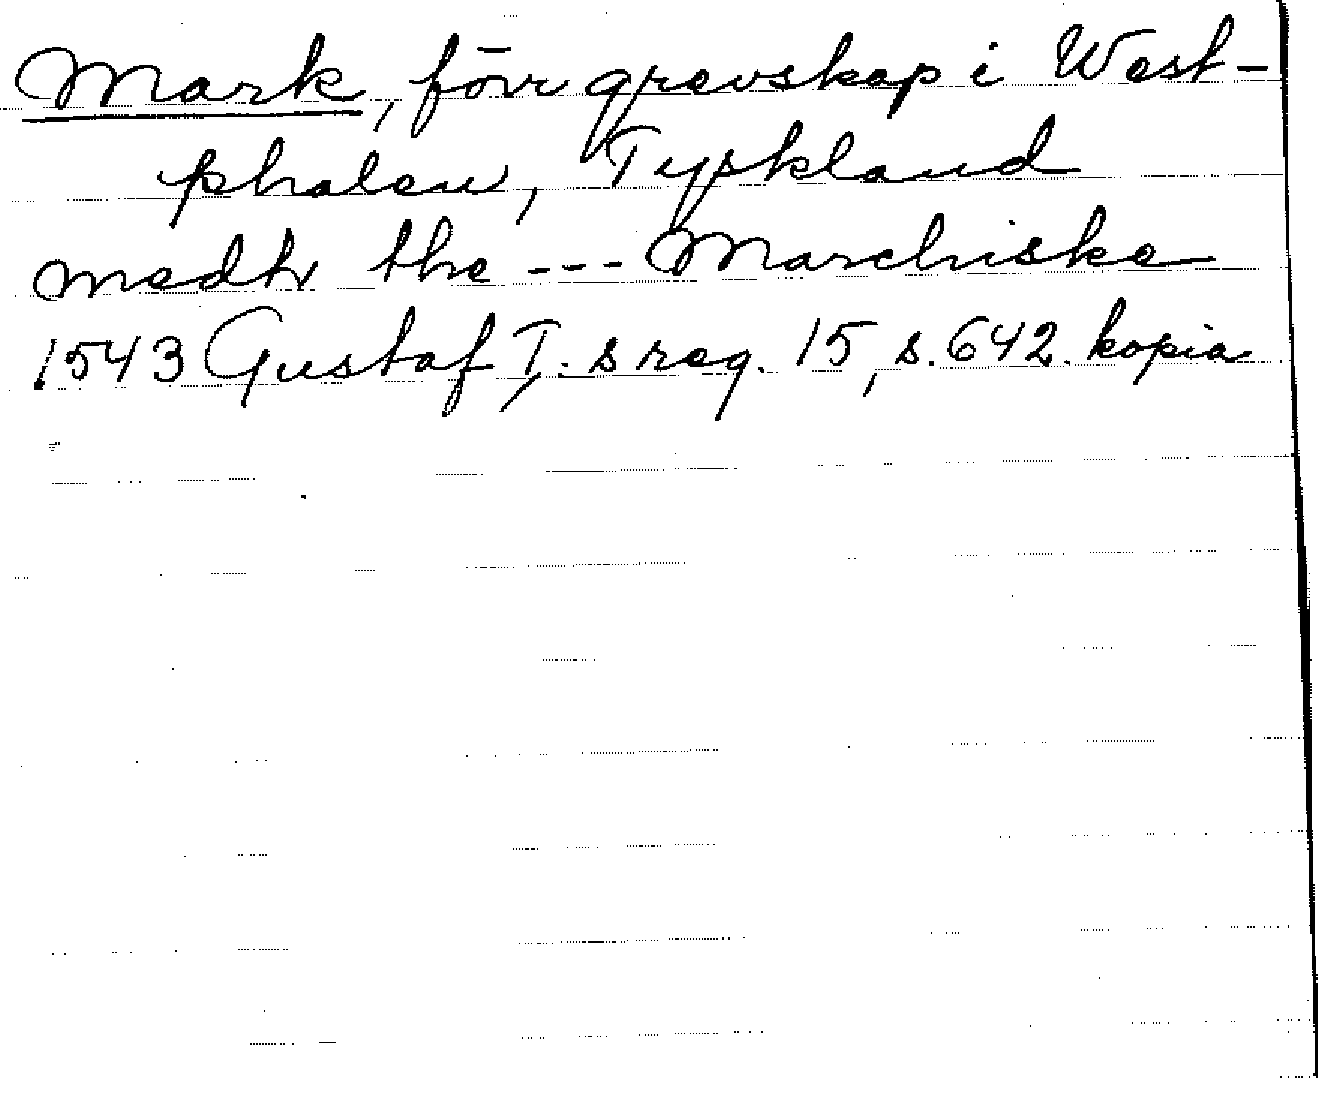 Mark, förr grevskap i West-
phalen, Tyskland
medh the --- Marchiske
1543 Gustaf I. s reg. 15, s. 642. kopia